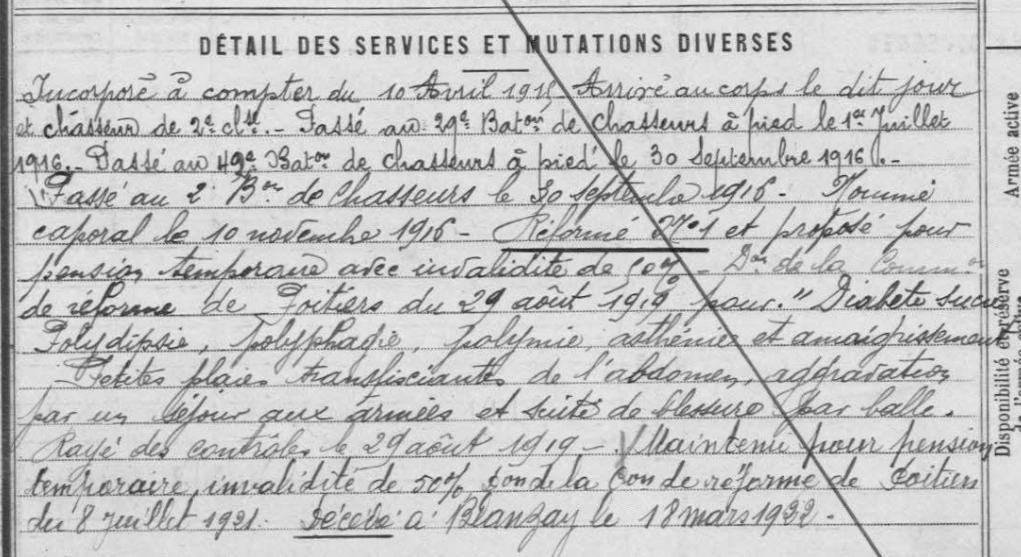 DÉTAIL DES SERVICES ET MUTATIONS DIVERSES
Incorporé à compter du 10 Avril 1915 Arrivé au corps le dit jour
et chasseur de 2e clse. - Passé au 29e Baton de Chasseurs à pied le 1er Juillet
1916. - Passé au 49e Baton de chasseurs à pied le 30 Septembre 1916. -
Passé au 2e Bon de Chasseurs le 30 septembre 1916 - Nommé
caporal le 10 novembre 1916 - Réformé N°1 et proposé pour
pension temporaire avec invalidité de - Don de la Common
de réforme de Poitiers du 29 août 1919 pour. " Diabète sucré
Polydipsie, polyphagie, polymie, asthénie et amaigrissement
Petites plaies transfisciantes de l'abdomen, aggravation
par un séjour aux armées et suite de blessure par balle.
Rayé des contrôles le 29 août 1919 - Maintenu pour pension
temporaire, invalidité de 50% de la Con de réforme de Poitiers
du 8 juillet 1921. Décédé à Blanzay le 18 mars 1922 -
Armée active
Disponibilité et réserve
de l'armée active